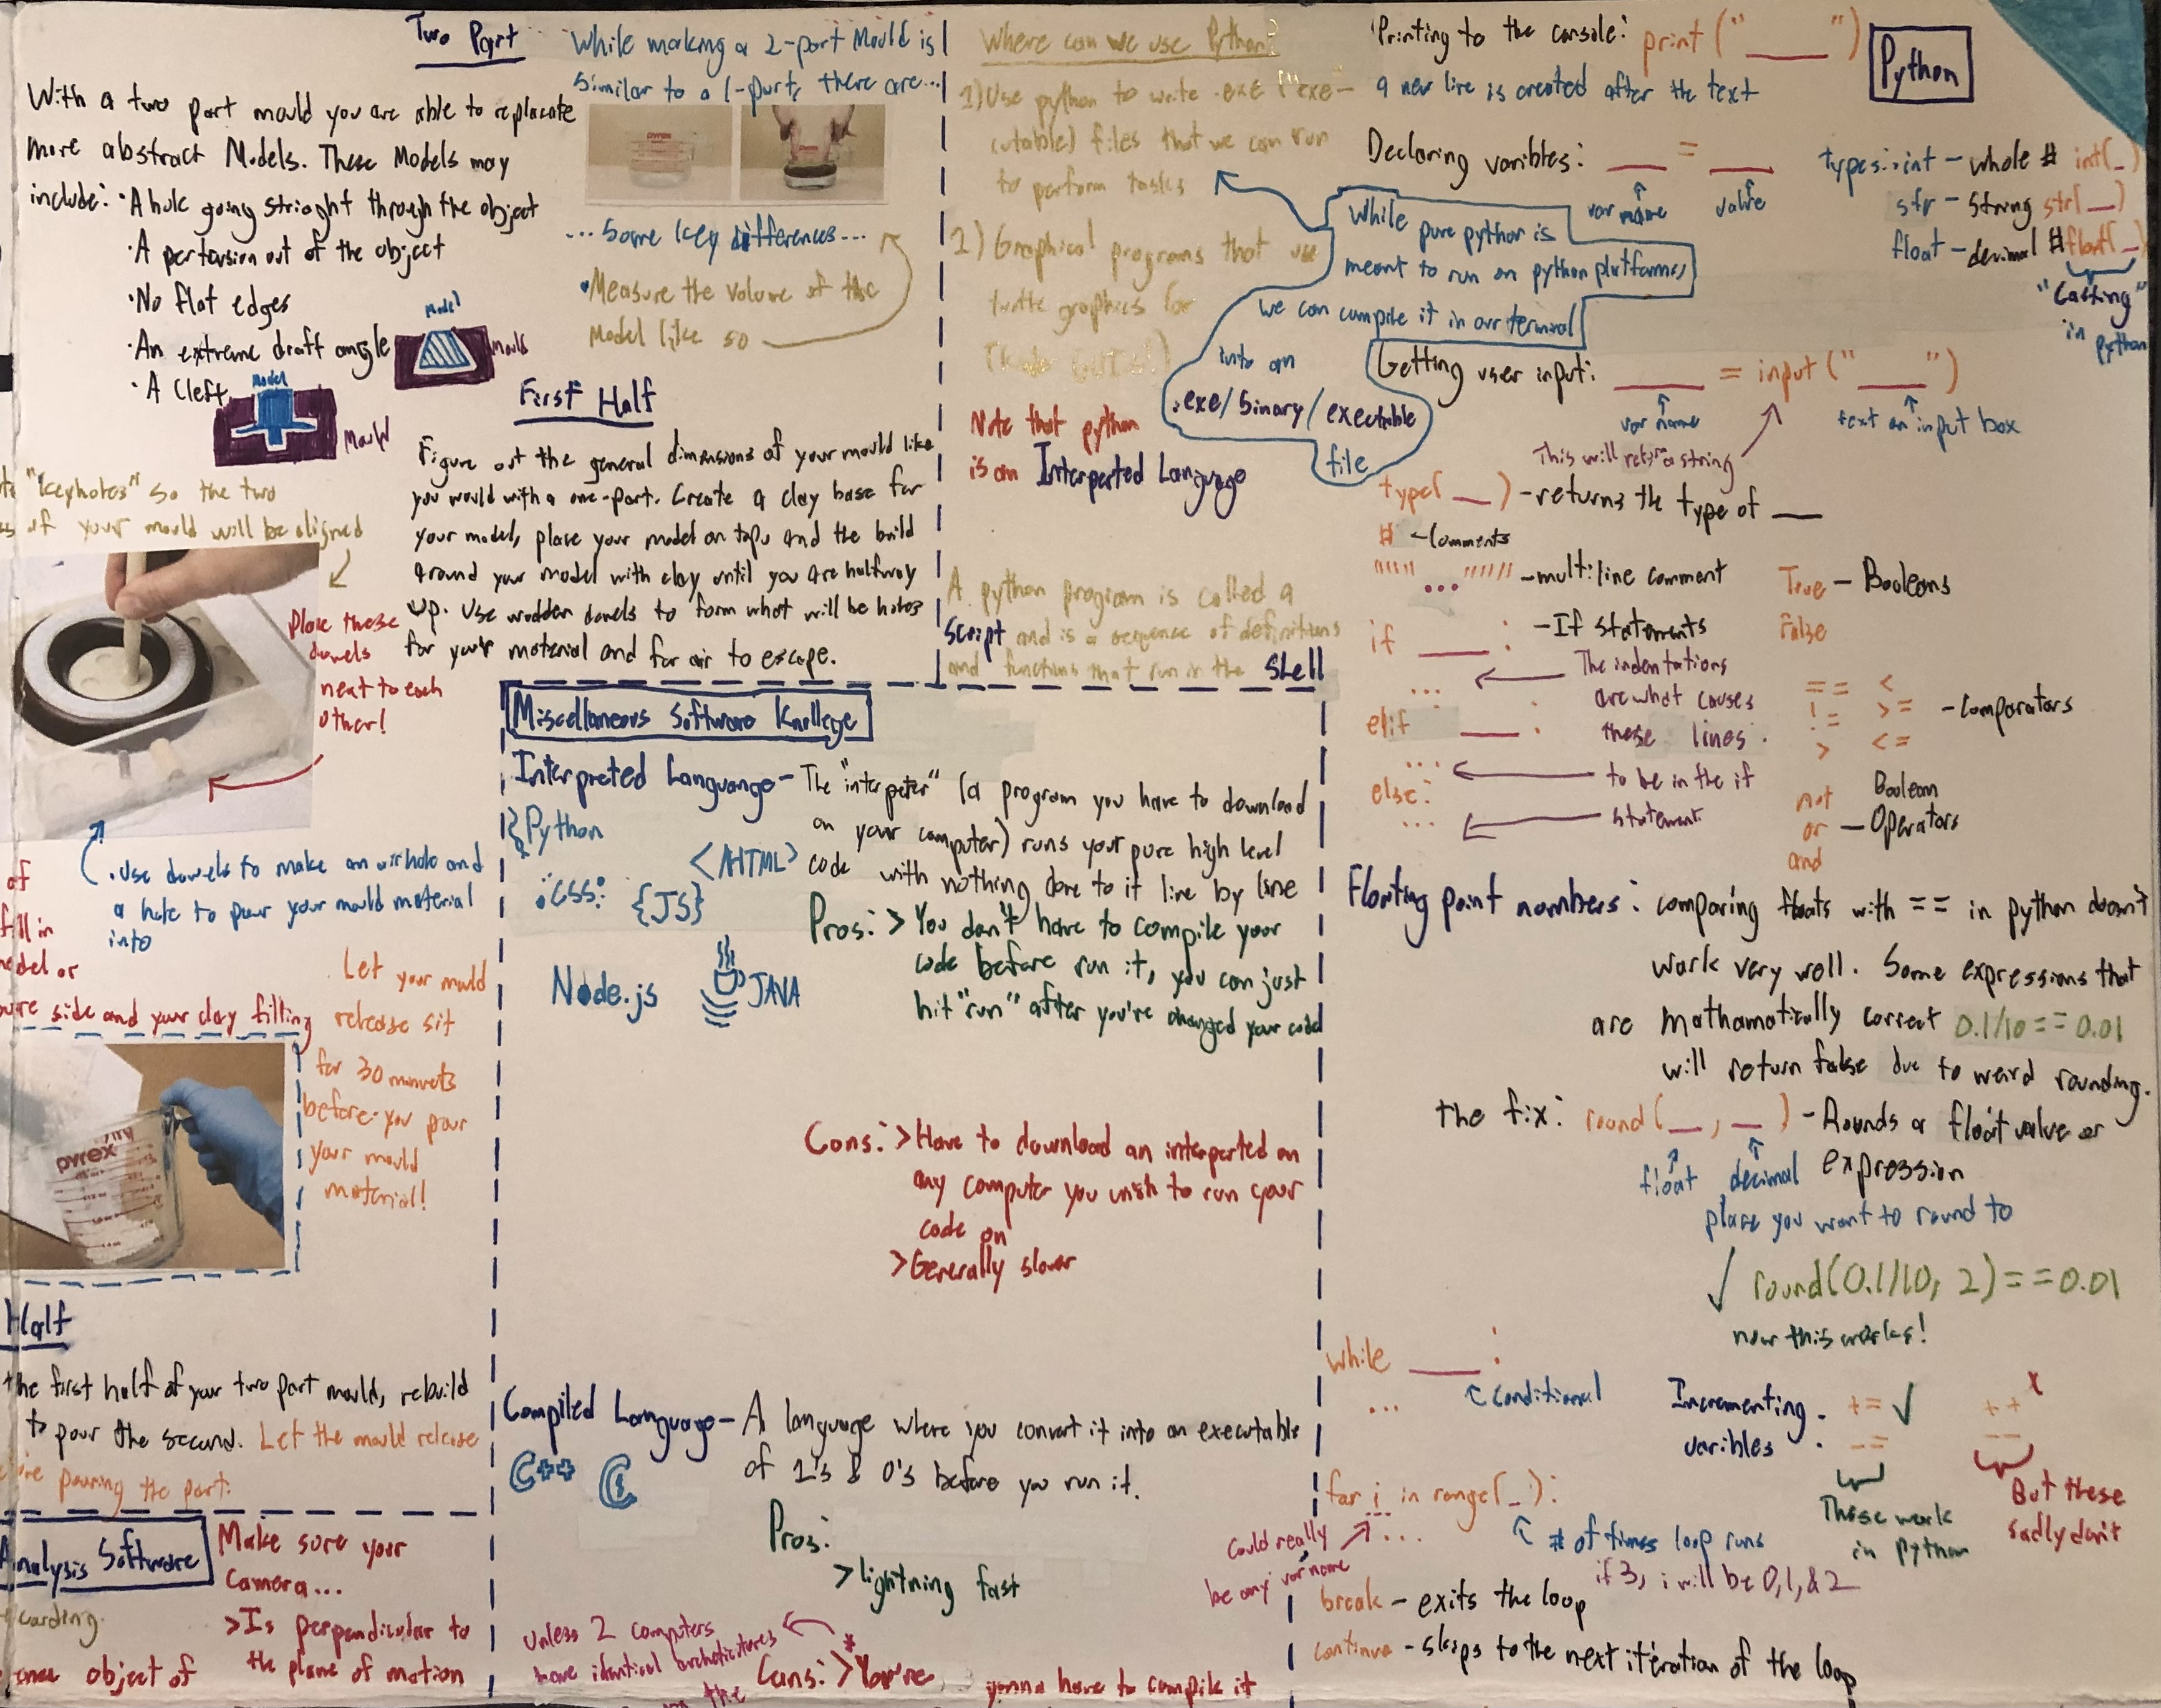 Two Part
With a two part mould you are able to replacate
more abstract Models. These Models may
include: · A hole going strioght through the object
· A pertursion out of the object
· No flat edges
· An extreme draft angle
· A Cleft
Model
Mould
Model
Mould
While making a 2-part Mould is
similar to a 1-part, there are...
pyrex
... Some key differences...
• Measure the volume of the
Model like so
First Half
Figure out the general dimensions of your mould like
you would with a one-part. Create a clay base for
your model, place your model on top, and the build
around your model with clay until you are halfway
up. Use wodden dowels to form what will be holes
for your material and for air to escape.
"keyholes" so the two
of your mould will be aligned
Place these
dowels
next to each
other!
• Use dowels to make an airhole and
a hole to pour your mould material
into
of
fill in
model or
side and your clay filling
Let your mould
release sit
for 30 minuets
before you pour
your mould
material!
pyrex
Half
the first half of your two part mould, rebuild
to pour the second. Let the mould release
pouring the part.
Analysis Software
object of
Make sure your
camera...
>Is perpendicular to
the plane of motion
Where can we use Python?
1) Use python to write .exe ("exe-
cutable) files that we can run
to perform tasks
2) Graphical programs that use
turtle graphics for
While pure python is
meant to run on python platforms,
we can compile it in our terminal
into an
.exe/binary/executable
file
Note that python
is an Interperted Language
A python program is called a
Script and is a sequence of definitions
and functions that run in the Shell
Miscellaneous Software Knollege
Interpreted Languange - The "interpeter" (a program you have to download
on your computer) runs your pure high level
code with nothing done to it line by line
Python
<HTML>
CSS
{JS}
Node.js
JAVA
Pros: > You don't have to compile your
code before run it, you can just
hit "run" after you're changed your code
Cons: > Have to download an interperted on
any computer you wish to run your
code on
> Generally slower
Compiled Language - A language where you convert it into an executable
of 1's & 0's before you run it.
C++ C
Pros:
> lightning fast
unless 2 computers
have identical archetictures
the
*
Cons: > You're gonna have to compile it
Python
Printing to the console: print("____")
a new line is created after the text
Declaring varibles: ___ = ___
var name
value
types: int - whole # int(_)
str - string str(_)
float - decimal # float(_)
"Casting"
in python
Getting user input: ____ = input("____")
var name
text on input box
This will return a string
type(__) - returns the type of __
# - Comments
""" ... """ - multiline comment
True - Booleans
False
if ____ : - If statements
...
elif ___ :
...
else:
...
The indentations
are what causes
these lines
to be in the if
statement
== <
!= >= - Comparators
> <=
not
or
and
Boolean
- Operators
Floating point numbers: comparing floats with == in python doesn't
work very well. Some expressions that
are mathamatically correct 0.1/10 == 0.01
will return false due to weird rounding.
the fix: round(__, __) - Rounds a float value or
expression
float
decimal
place you want to round to
✓ round(0.1/10, 2) == 0.01
now this works!
while ____ :
...
conditional
Incrementing
varibles :
+= ✓
-=
These work
in python
++ x
--
But these
sadly don't
for i in range(_):
...
Could really
be any var name
# of times loop runs
if 3, i will be 0, 1, & 2
break - exits the loop
continue - skips to the next iteration of the loop